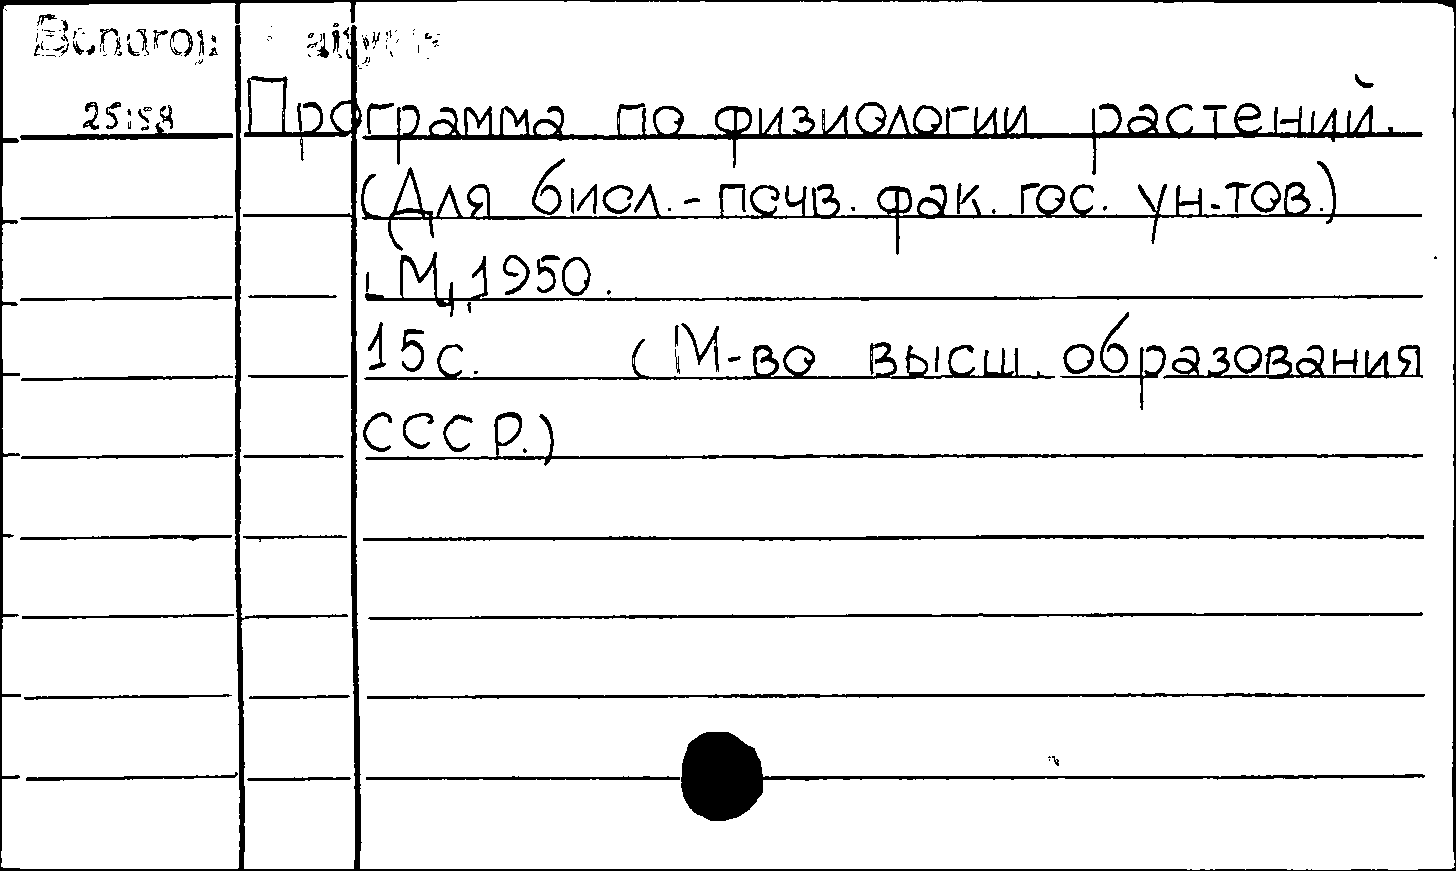 25158
Программа по физиологии растений.
(Для биол.-почв. фак. гос. ун-тов.)
М., 1950.
15с. (М-во высш. образования
СССР.)